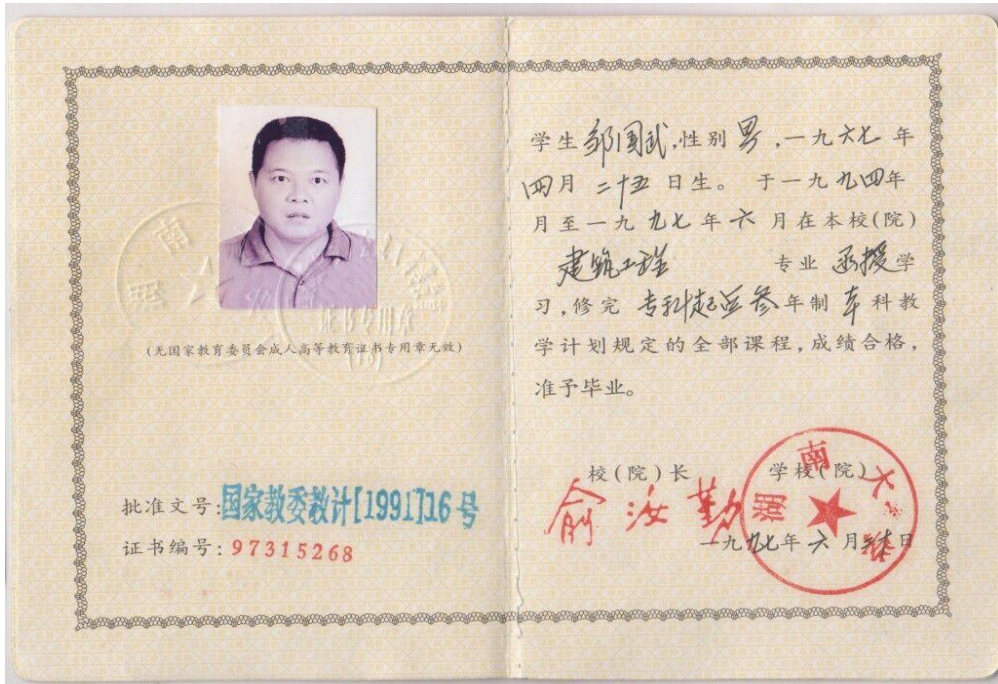 (无国家教育委员会成人高等教育证书专用章无效)
批准文号:国家教委教计[1991]16号
证书编号:97315268
学生邹国武,性别男,一九六七年
四月二十五日生。于一九九四年
月至一九九七年六月在本校(院)
建筑工程 专业函授学
习,修完专科起点叁年制本科教
学计划规定的全部课程,成绩合格,
准予毕业。
校(院)长 学校(院)
俞汝勤
湖南大学
一九九七年六月 日
证书专用章